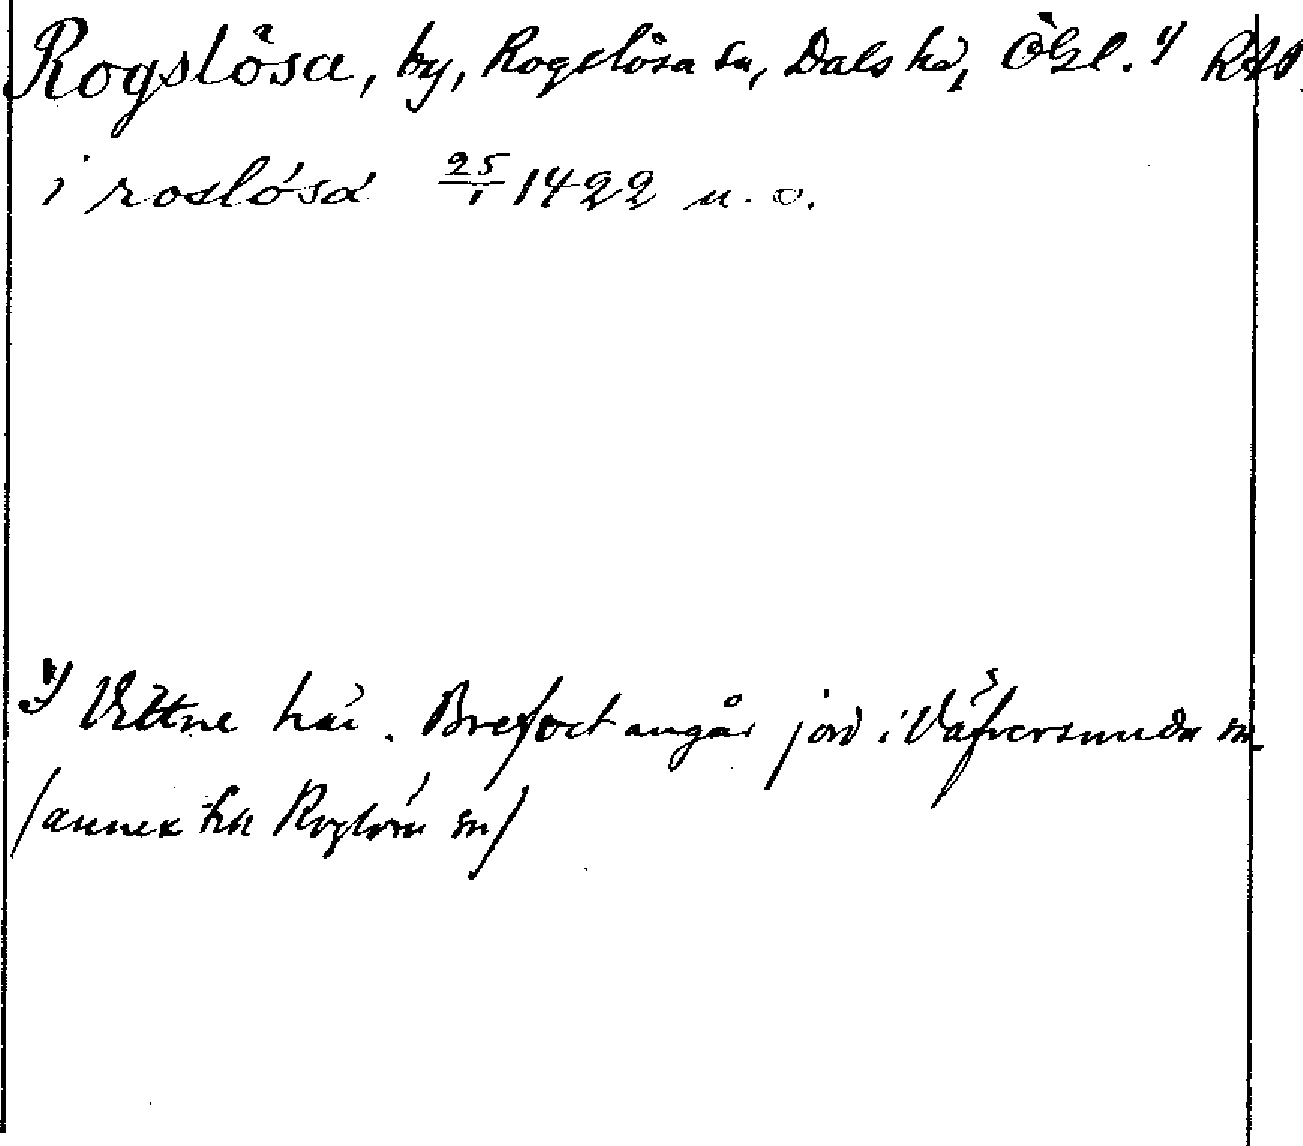 Rogslösa, by, Rogslösa sn, Dals hd, Ögl. 1) RAO.
i roslósa 25/1 1422 u. o.
1) Vittne här. Brefvet angår jord i Väfversunda sn
/annex till Roglösa sn/